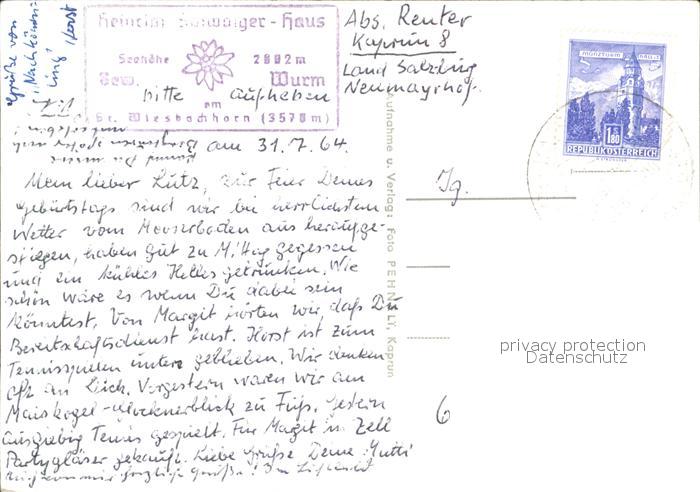 Grüße von
Horst
Heinrich Schwaiger-Haus
Seehöhe 2802 m
Bew. Wurm
am
Gr. Wiesbachhorn (3570 m)
bitte aufheben
Abs. Reuter
Kaprun 8
Land Salzburg
Neumayrhof.
MÜNZTURM HALL
1.80
REPUBLIK ÖSTERREICH
am 31.7.64.
Mein lieber Lutz, zur Feier Deines
Geburtstags sind wir bei herrlichstem
Wetter vom Mooserboden aus heraufge-
stiegen, haben gut zu Mittag gegessen
und ein kühles Helles getrunken. Wie
schön wäre es wenn Du dabei sein
könntest. Von Margit hörten wir, daß Du
Bereitschaftsdienst hast. Horst ist zum
Tennisspielen unten geblieben. Wir denken
oft an Dich. Vorgestern waren wir am
Maiskogel-Glocknerblick zu Fuß. Gestern
ausgiebig Tennis gespielt. Für Margit in Zell
Partygläser gekauft. Liebe Grüße Deine Mutti
Auch von mir herzliche Grüße!
Jg.
6
Aufnahme u. Verlag: Foto PEHNELT, Kaprun
privacy protection
Datenschutz